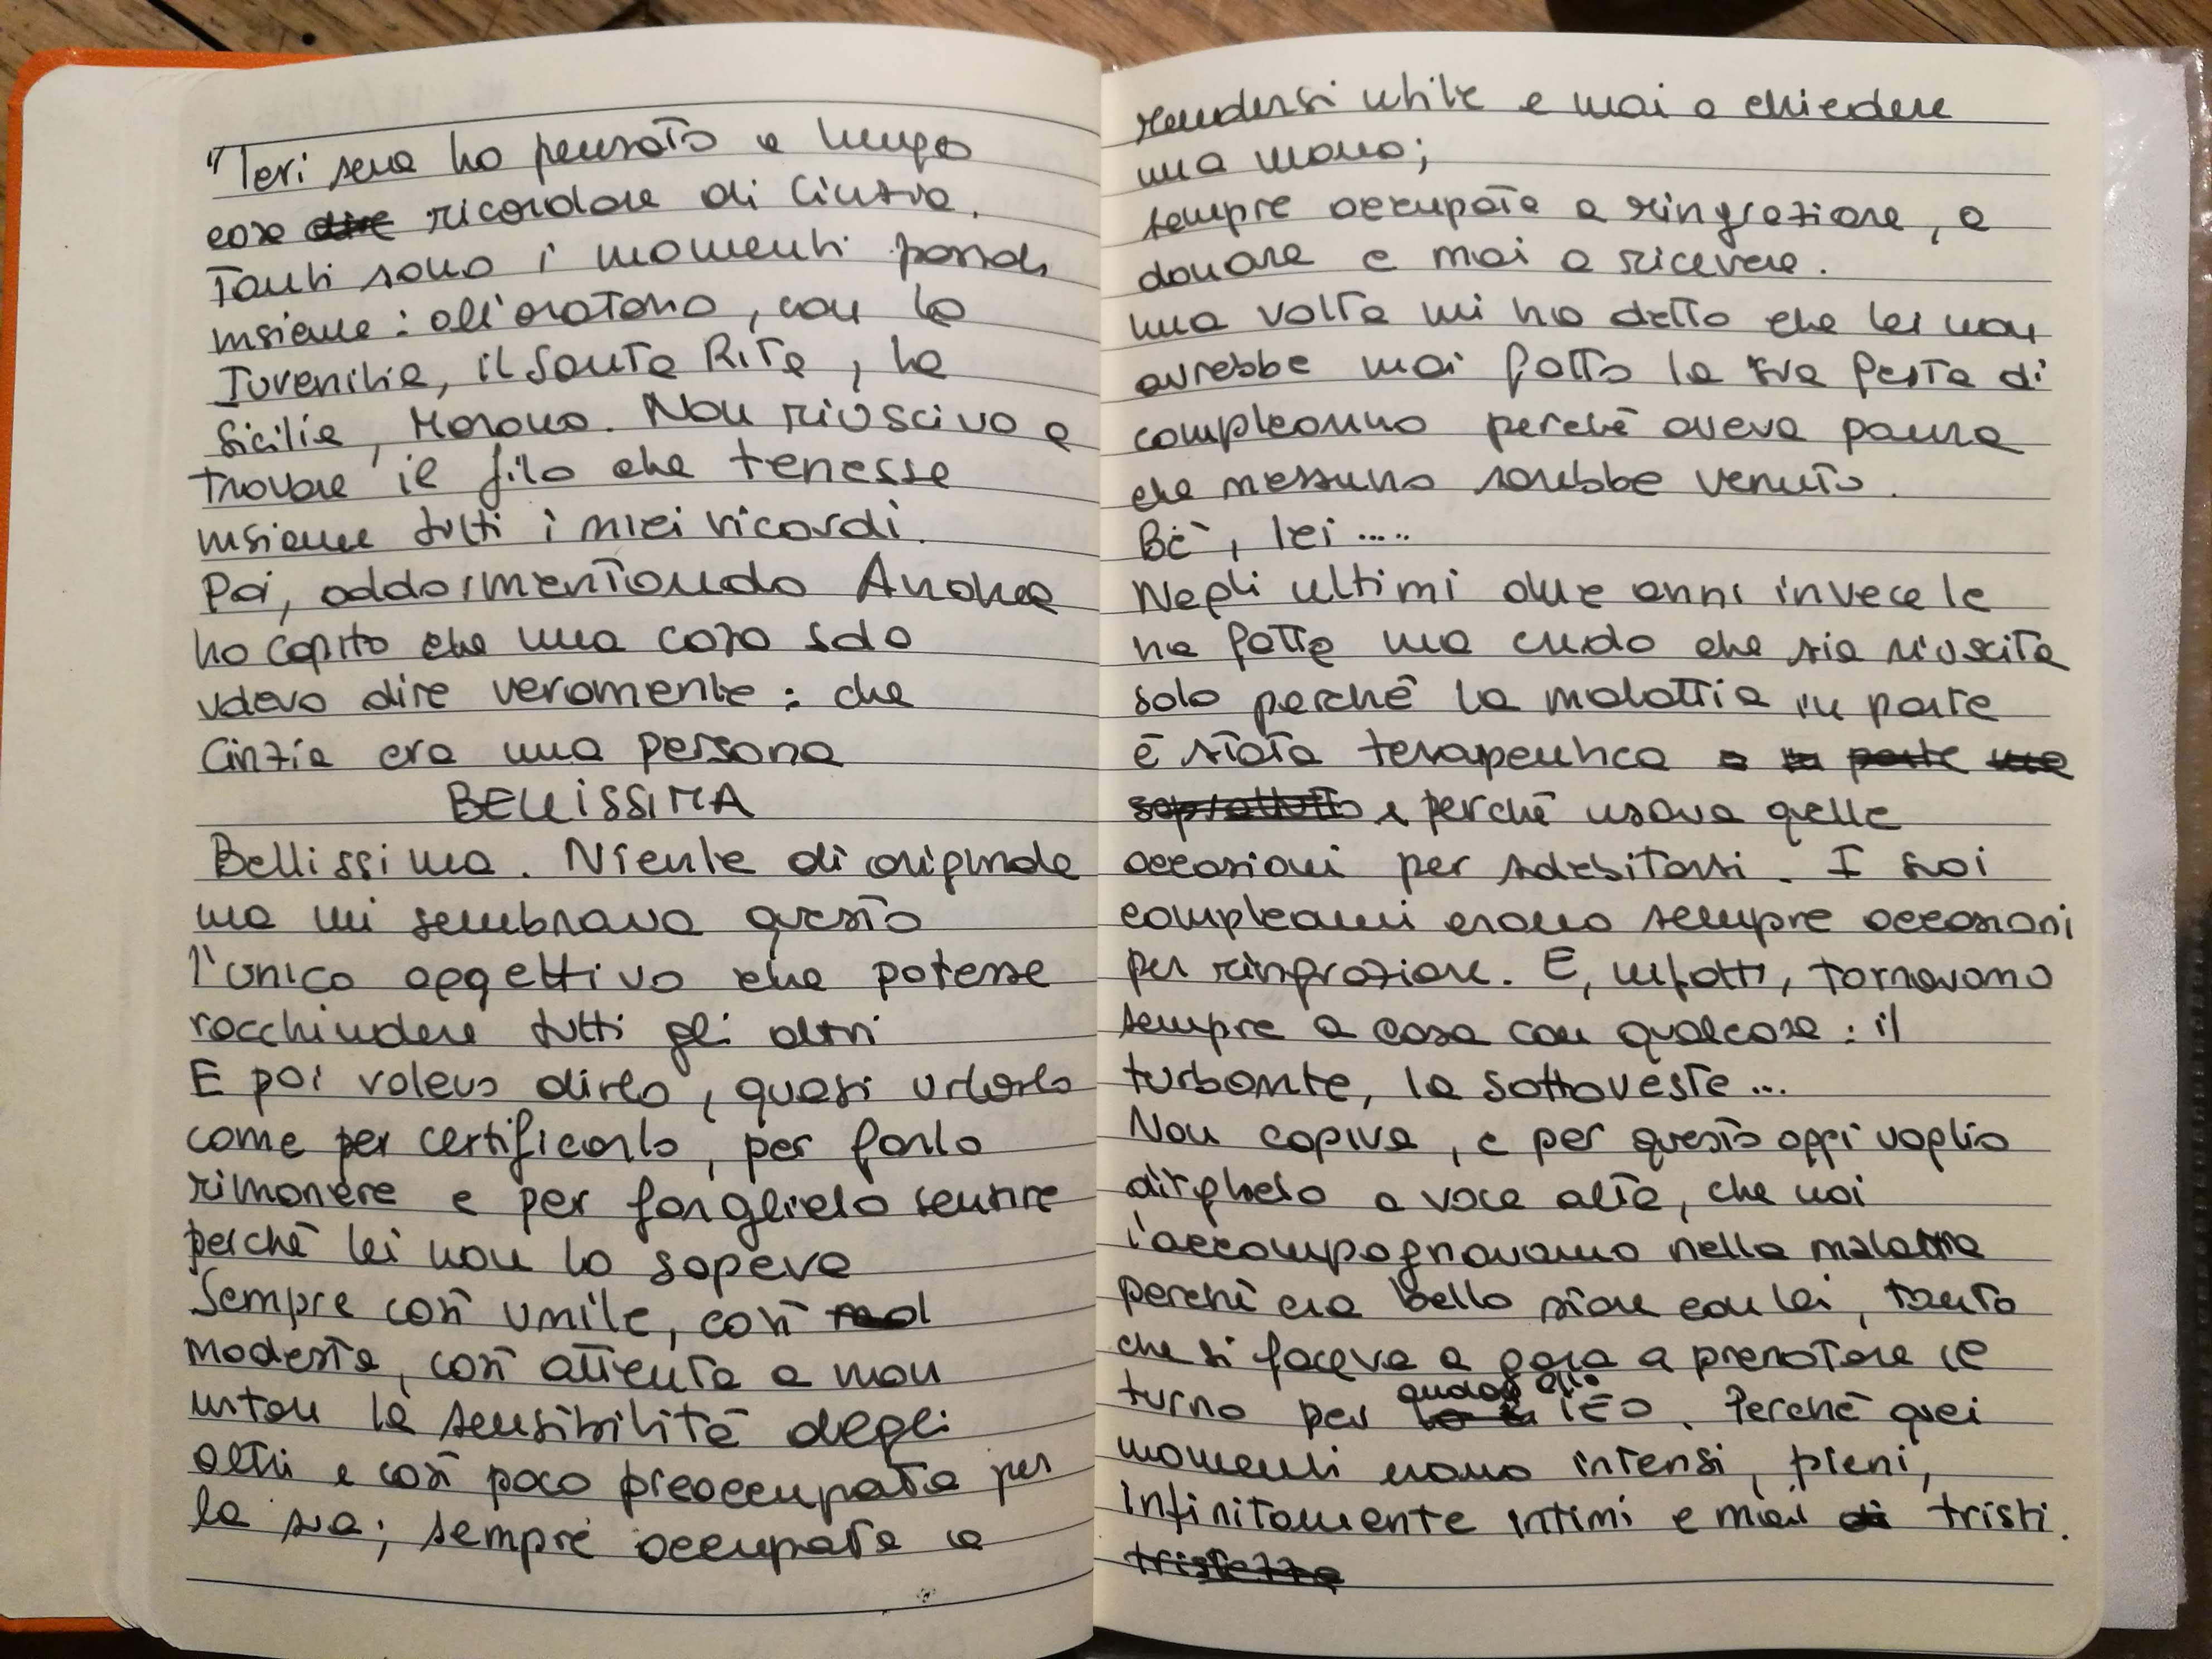 "Ieri sera ho pensato a lungo
cosa dire ricordare di Cinzia.
Tanti sono i momenti passati
insieme: all'oratorio, con la
Juvenilia, il Santa Rita, la
Sicilia, Morano. Non riuscivo a
trovare il filo che tenesse
insieme tutti i miei ricordi.
Poi, addormentando Andrea
ho capito che una cosa sola
volevo dire veramente: che
Cinzia era una persona
BELLISSIMA
Bellissima. Niente di originale
ma mi sembrava questo
l'unico aggettivo che potesse
racchiudere tutti gli altri
E poi volevo dirlo, quasi urlarlo
come per certificarlo, per farlo
rimanere e per farglielo sentire
perchè lei non lo sapeva
Sempre così umile, così
modesta, così attenta a non
urtare la sensibilità degli
altri e così poco preoccupata per
la sua; sempre occupata a
rendersi utile e mai a chiedere
una mano;
sempre occupata a ringraziare, a
donare e mai a ricevere.
una volta mi ha detto che lei non
avrebbe mai fatto la sua festa di
compleanno perchè aveva paura
che nessuno sarebbe venuto.
Bè, lei .....
Negli ultimi due anni invece le
ha fatte ma credo che sia riuscita
solo perchè la malattia in parte
è stata terapeutica a in parte una
soprattutto e perchè usava quelle
occasioni per sdebitarsi. I suoi
compleanni erano sempre occasioni
per ringraziare. E, infatti, tornavamo
sempre a casa con qualcosa: il
turbante, la sottoveste...
Non capiva, e per questo oggi voglio
dirglielo a voce alta, che noi
l'accompagnavamo nella malattia
perchè era bello stare con lei, tanto
che si faceva a gara a prenotare il
turno per andare allo IEO. Perchè quei
momenti erano intensi, pieni,
infinitamente intimi e mai di tristi.
tristezza